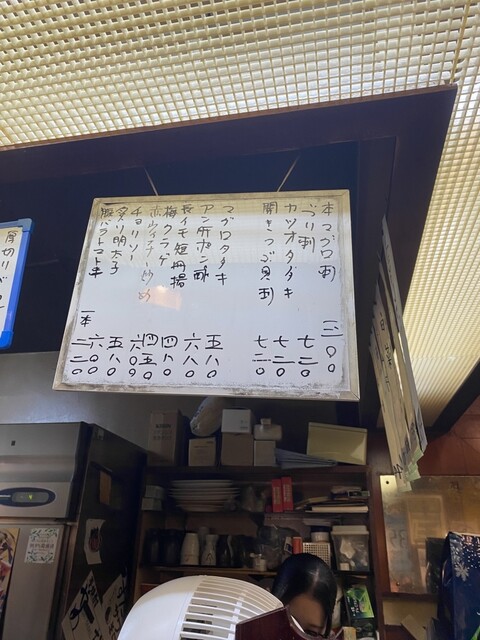 本マグロ刺
ぶり刺 七二〇
カツオタタキ 七二〇
開きつぶ貝刺 七二〇
マグロタタキ 五八〇
アン肝ポン酢 六八〇
長イモ短冊揚 四八〇
梅クラゲ 四五〇
炒め 六〇〇
チョリソー 五八〇
炙り明太子 六〇〇
豚バラトマト串 一本 二二〇
厚切りベ